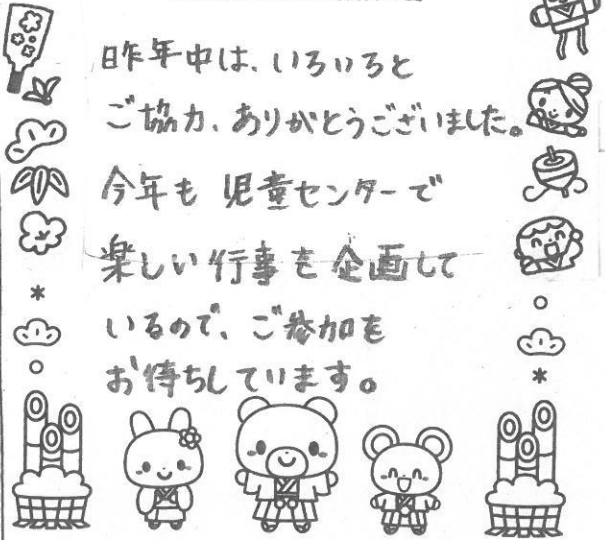 昨年中は、いろいろと
ご協力、ありがとうございました。
今年も 児童センターで
楽しい行事を企画して
いるので、ご参加を
お待ちしています。